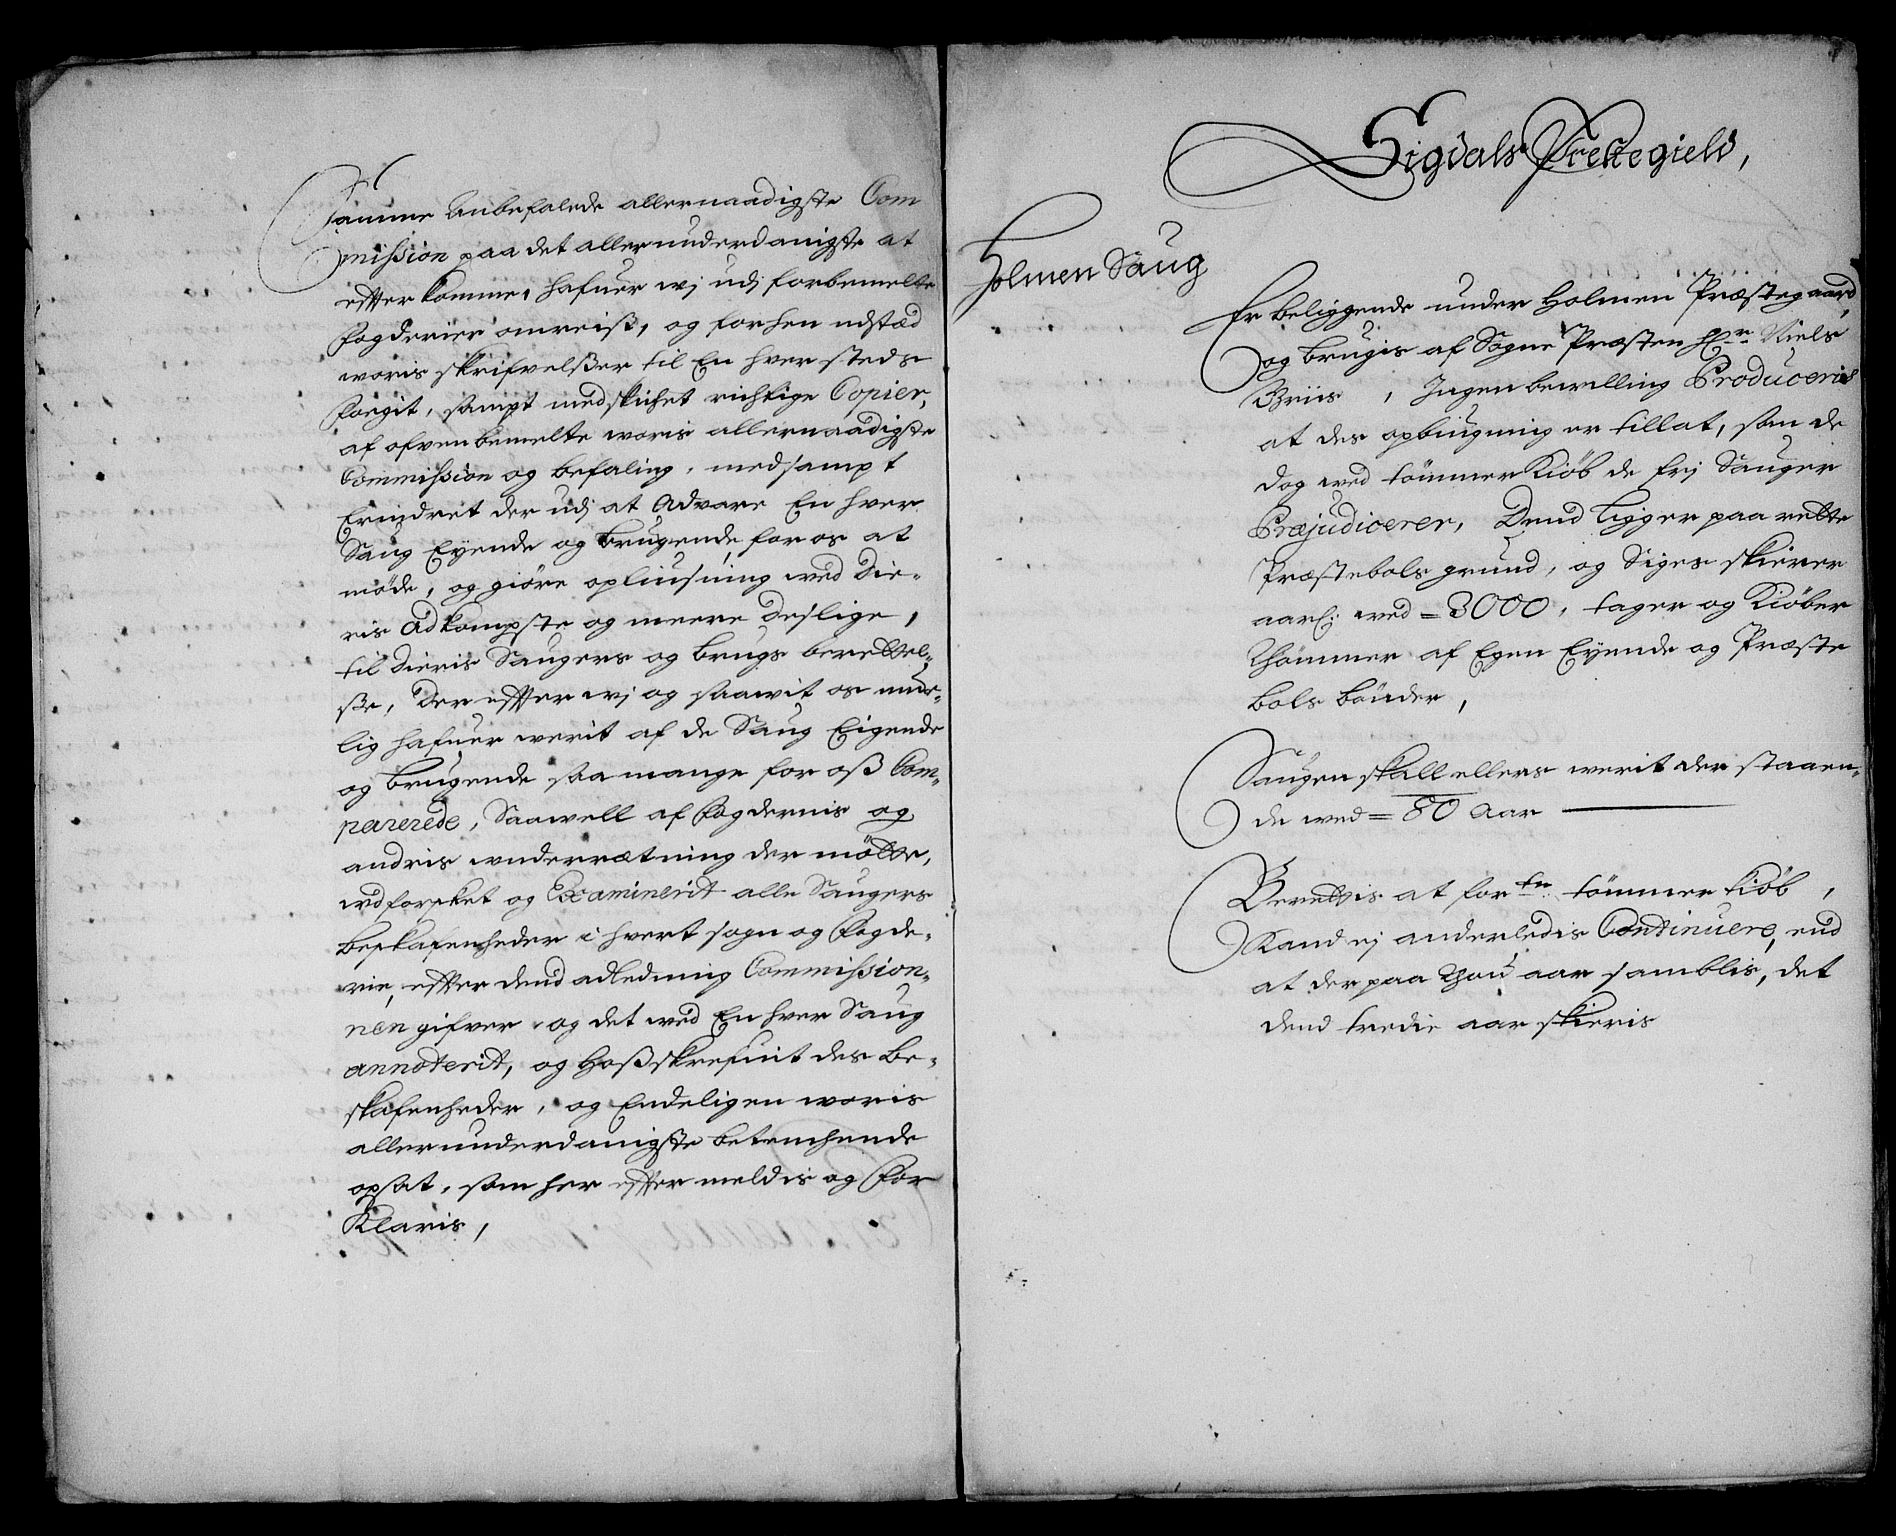 Samme Anbefalede allernaadigste Com
mission paa det allerunderdanigste at
effterkomme, hafuer wj udj forbemelte
fogderier omreist, og forhen udstæd
woris skrifvelßer til En hver steds
foegit, sampt medskichet richtige Copier,
af ofvenbemelte woris allernaadigste
Commission og befaling, medsampt
Erindret der udj at Advare En hver
Saug Eyende og brugende, for os at
møde, og giøre opliusning wed Die-
ris Adkompste og meere deslige,
til dieris Saugers og brugs berettel-
ße, Der effter wj og saawit os mue-
lig hafuer werit af de Saug Eigende
og brugende saa mange for oß Com-
parerede, Saawell af fogdernis og
andris underrætning der mötte,
udforsket og Examinerit alle Saugers
beskafenheder i hvert sogn og fogde-
rie, effter dend adledning Commission-
nen gifver, og det wed En hver Saug
annoterit, og hoßskrefuit des be-
skafenheder, og Endeligen woris
allerunderdanigste betenchende
opsat, som her effter meldis og for
Klaris,
Sigdals Prestegield,
Holmen Saug
Er beliggende under Holmen Præstegaard,
og brugis af Sogne Præsten Hr Niels
Briis, Ingen bewilling Produceris
at des opbiugning er tillat, som de
dog wed tømmer Kiöb de frj Sauger
Præjudicerer, Dend ligger paa rette
Præstebols grund, og Siges skierer
aarl: wed = 3000, tager og Kiöber
Thömmer af Egen Eyende og Præste
bols bönder,
Saugen skall ellers werit der staaen-
de wed = 80 Aar
Berettis at forne tömmer kiöb,
Kand ej anderledis Continuere, end
at der paa thou aar samblis, det
dend tredie aar skieris